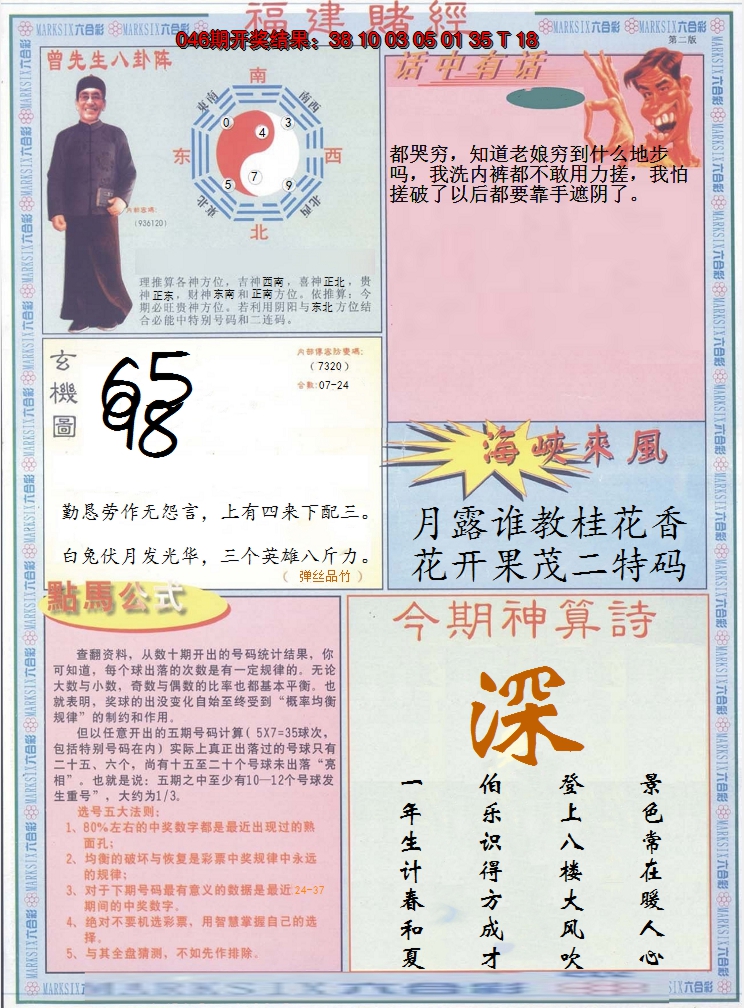 福建賭經
046期开奖结果：38 10 03 05 01 35 T 18
MARKSIX六合彩
第二版
曾先生八卦阵
南
東南
南西
0
4
3
东
西
5
7
9
東北
北西
北
内部密碼:
(936120)
理推算各神方位，吉神西南，喜神正北，贵
神正东，财神东南和正南方位。依推算：今
期必旺贵神方位。若利用阴阳与东北方位结
合必能中特别号码和二连码。
话中有话
都哭穷，知道老娘穷到什么地步
吗，我洗内裤都不敢用力搓，我怕
搓破了以后都要靠手遮阴了。
玄機圖
65
98
(7320)
合数:07-24
勤恳劳作无怨言，上有四来下配三。
白兔伏月发光华，三个英雄八斤力。
（ 弹丝品竹 ）
海峡來風
月露谁教桂花香
花开果茂二特码
點馬公式
查翻资料，从数十期开出的号码统计结果，你
可知道，每个球出落的次数是有一定规律的。无论
大数与小数，奇数与偶数的比率也都基本平衡。也
就表明，奖球的出没变化自始至终受到“概率均衡
规律”的制约和作用。
但以任意开出的五期号码计算（5X7=35球次，
包括特别号码在内）实际上真正出落过的号球只有
二十五、六个，尚有十五至二十个号球未出落“亮
相”。也就是说：五期之中至少有10—12个号球发
生重号”，大约为1/3。
选号五大法则：
1、80%左右的中奖数字都是最近出现过的熟
面孔；
2、均衡的破坏与恢复是彩票中奖规律中永远
的规律；
3、对于下期号码最有意义的数据是最近24-37
期间的中奖数字。
4、绝对不要机选彩票，用智慧掌握自己的选
择。
5、与其全盘猜测，不如先作排除。
今期神算詩
深
景色常在暖人心
登上八楼大风吹
伯乐识得方成才
一年生计春和夏